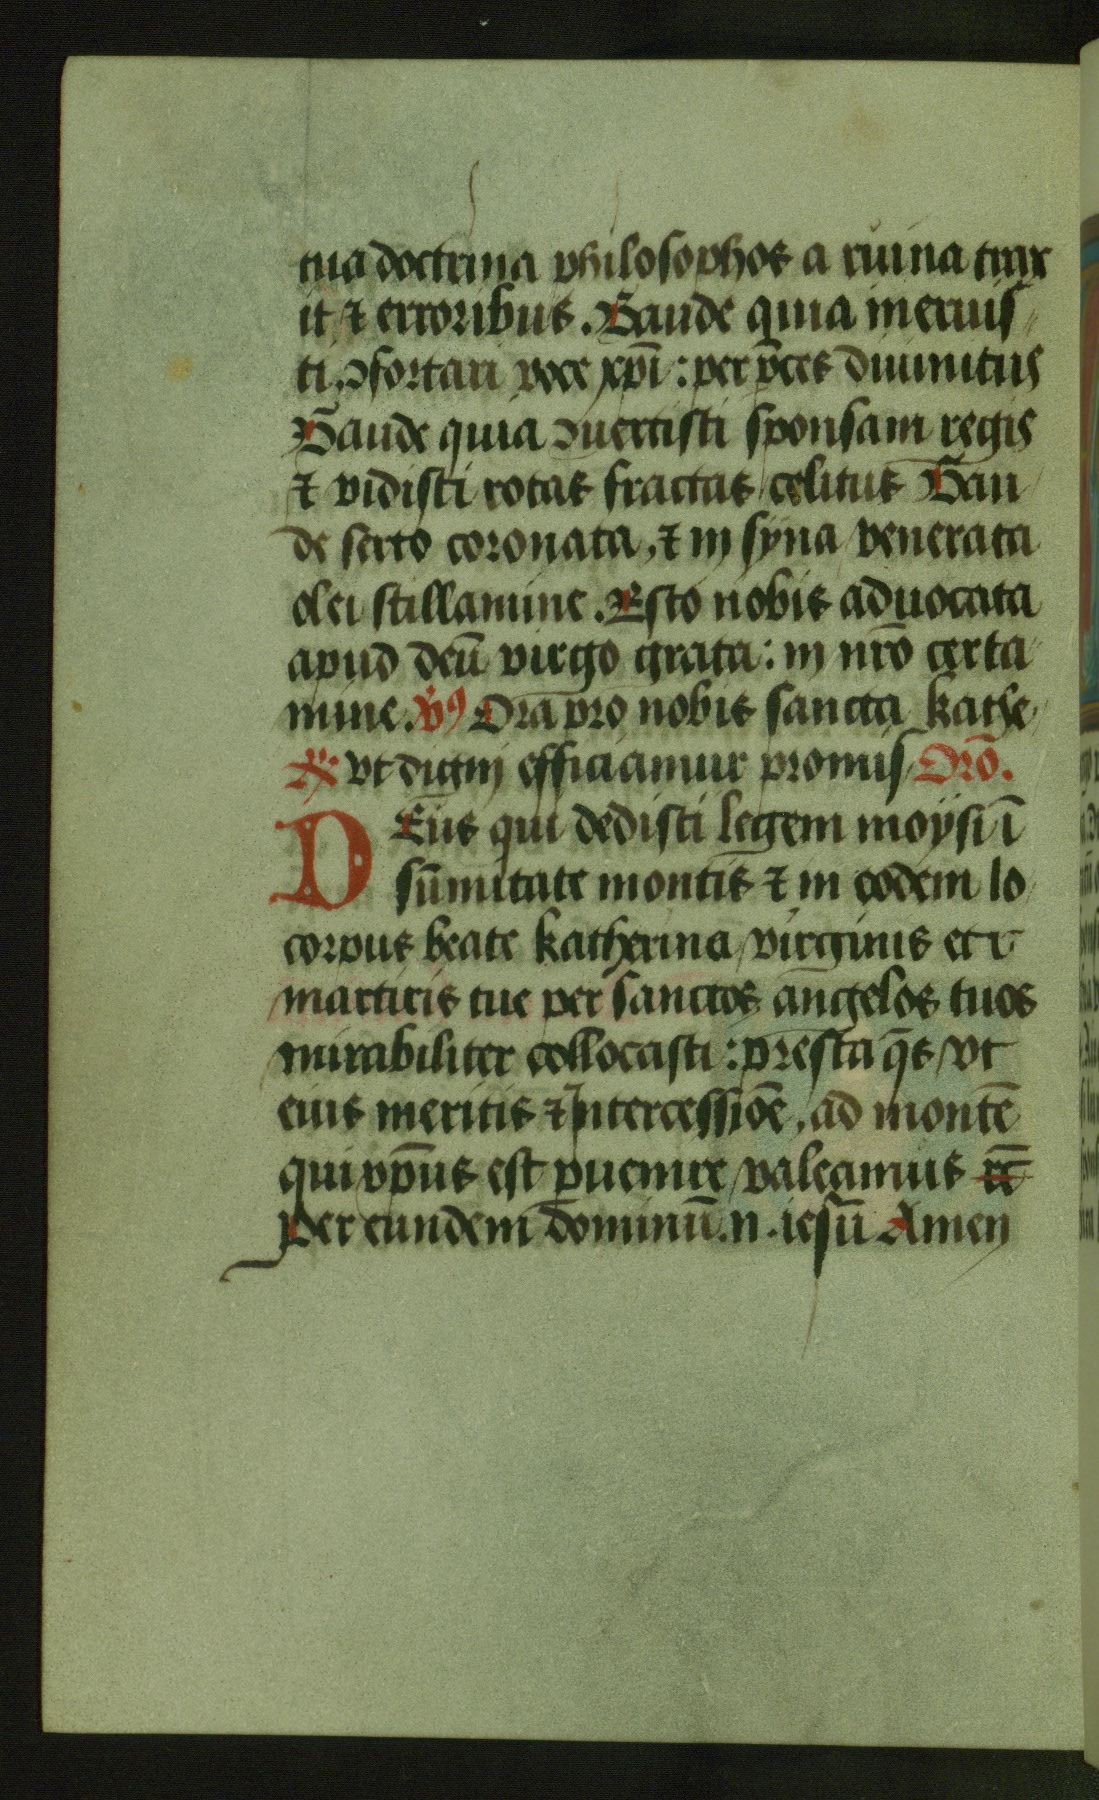 tua doctrina philosophos a ruina trax
it ⁊ erroribus. Gaude quia meruis
ti ꝯfortari voce xp̄i : per p̄ces diuinitus
Gaude quia ꝯuertisti sponsam regis
⁊ vidisti rotas fractas celitus Gau
de serto coronata, ⁊ in syna venerata
olei stillamine. Esto nobis aduocata
apud deū virgo grata : in nr̄o certa
mine. Vꝰ Ora pro nobis sancta kathe
R vt digni efficiamur promis Orō.
DEus qui dedisti legem moysi ī
sūmitate montis ⁊ in eodem lo
corpus beate katherina virginis et
martiris tue per sanctos angelos tuos
mirabiliter collocasti : presta q̄s vt
eius meritis ⁊ intercessiōe, ad montē
qui xp̄us est ꝑuenire valeamus rc̄
Per eundem dominū. n. iesū Amen